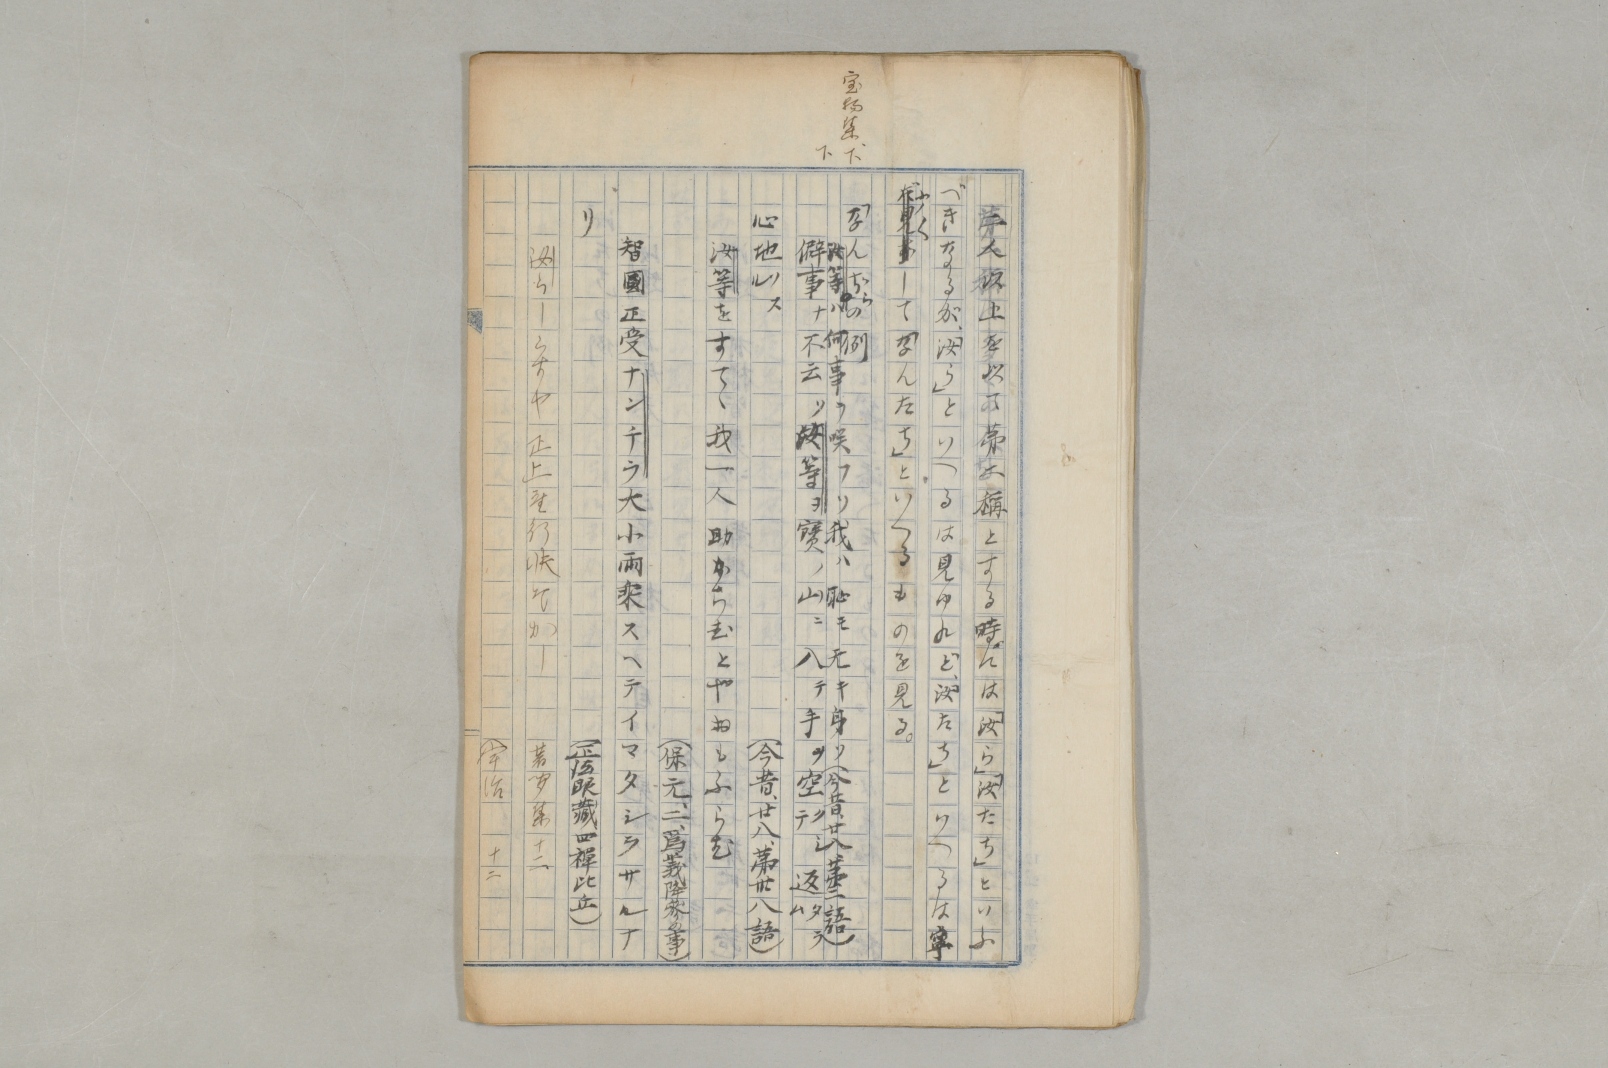 宝物集 下、
下
第二人称よ以て第二稱とする時には「汝ら」「汝たち」といふ
べきなるが、「汝ら」といへるは見ゆれど、「汝たち」といへるは寧
ろくして「なんたち」といへるものを見る。
「なんぢら」の例
汝等ハ何事ヲ咲フソ我ハ恥モ无キ身ソ(今昔、廿八、第二語)
僻事ナ不云ソ汝等ヲ寳ノ山ニ入テ手ヲ空クシテ返ムタラ
心地ハス
(今昔、廿八、第卅八語)
汝等をすてゝ我一人助からむとやおもふらむ
(保元、二、為義降参の事)
智國正受ナンチラ大小兩乘スヘテイマタシラサルナ
リ
(正法眼藏四禪比丘)
著聞集 十二
宇治 十二